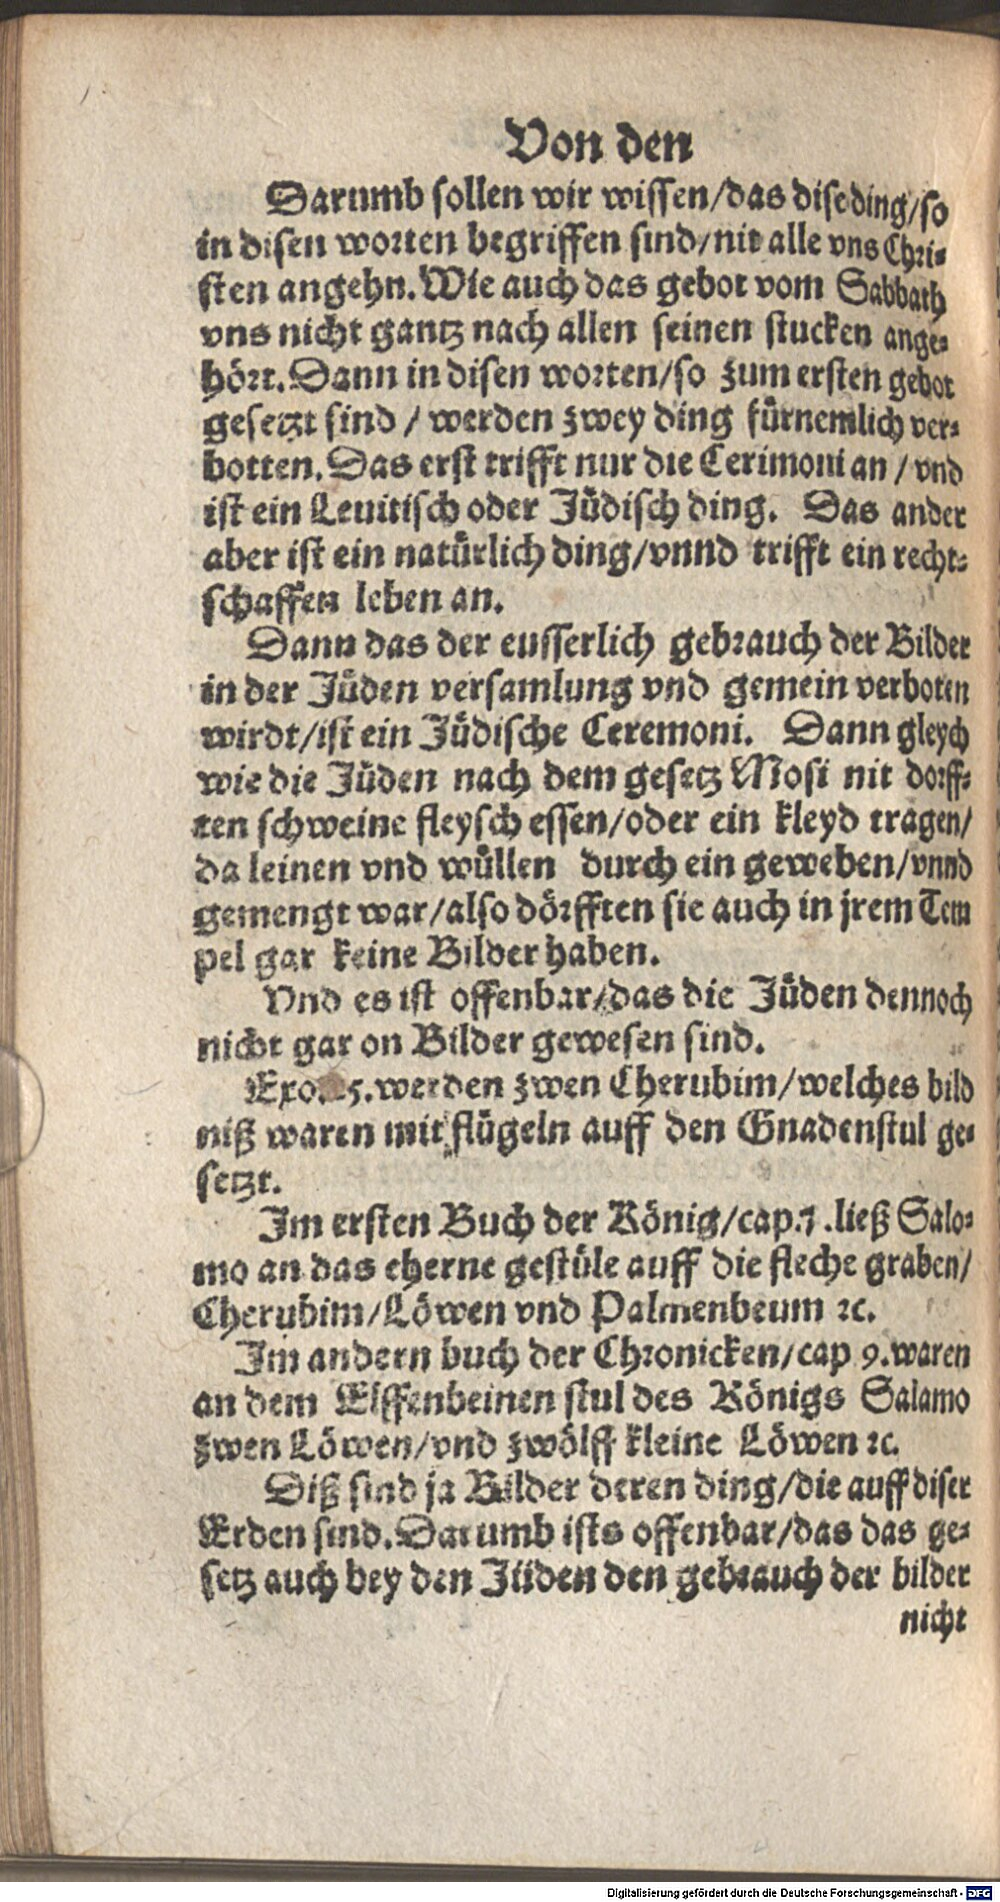 Von den
Darumb sollen wir wissen/das dise ding/so
in disen worten begriffen sind/nit alle vns Chri-
sten angehn. Wie auch das gebot vom Sabbath
vns nicht gantz nach allen seinen stucken ange-
hört. Dann in disen worten/so zum ersten gebot
gesetzt sind / werden zwey ding fürnemlich ver-
botten. Das erst trifft nur die Cerimoni an / vnd
ist ein Leuitisch oder Jüdisch ding. Das ander
aber ist ein natürlich ding/vnnd trifft ein recht-
schaffen leben an.
Dann das der eusserlich gebrauch der Bilder
in der Jüden versamlung vnd gemein verboten
wirdt/ist ein Jüdische Ceremoni. Dann gleych
wie die Jüden nach dem gesetz Mosi nit dorff-
ten schweine fleysch essen/oder ein kleyd tragen/
da leinen vnd wüllen durch ein geweben/vnnd
gemengt war/also dörfften sie auch in jrem Tem
pel gar keine Bilder haben.
Vnd es ist offenbar/das die Jüden dennoch
nicht gar on Bilder gewesen sind.
Exo. 25. werden zwen Cherubim/welches bild
niß waren mit flügeln auff den Gnadenstul ge-
setzt.
Im ersten Buch der König/cap.7.ließ Salo-
mo an das eherne gestüle auff die fleche graben/
Cherubim/Löwen vnd Palmenbeum ꝛc.
Im andern buch der Chronicken/cap 9.waren
an dem Elffenbeinen stul des Königs Salamo
zwen Löwen/vnd zwölff kleine Löwen ꝛc.
Diß sind ja Bilder deren ding/die auff diser
Erden sind. Darumb ists offenbar/das das ge-
setz auch bey den Jüden den gebrauch der bilder
nicht
Digitalisierung gefördert durch die Deutsche Forschungsgemeinschaft - DFG